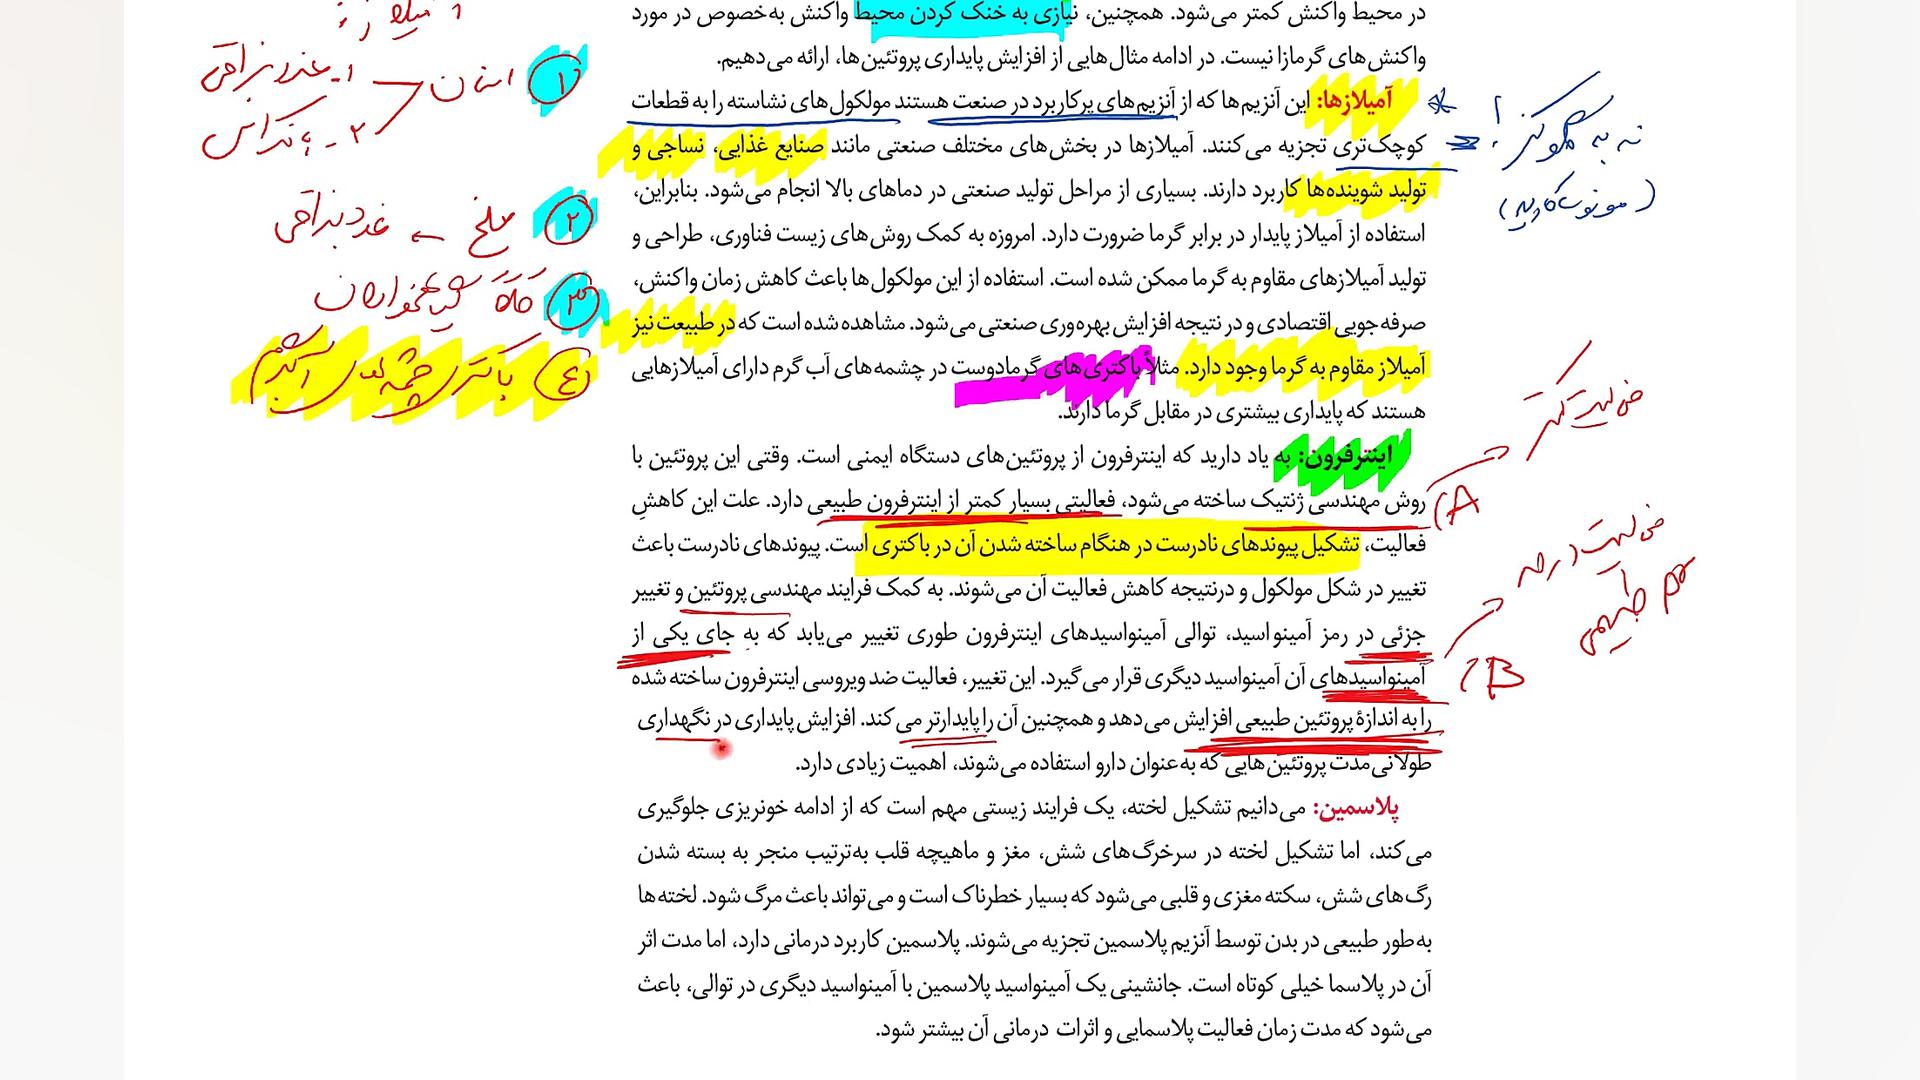 در محیط واکنش کمتر می‌شود. همچنین، نیازی به خنک کردن محیط واکنش به‌خصوص در مورد
واکنش‌های گرمازا نیست. در ادامه مثال‌هایی از افزایش پایداری پروتئین‌ها، ارائه می‌دهیم.
آمیلازها: این آنزیم‌ها که از آنزیم‌های پرکاربرد در صنعت هستند مولکول‌های نشاسته را به قطعات
کوچک‌تری تجزیه می‌کنند. آمیلازها در بخش‌های مختلف صنعتی مانند صنایع غذایی، نساجی و
تولید شوینده‌ها کاربرد دارند. بسیاری از مراحل تولید صنعتی در دماهای بالا انجام می‌شود. بنابراین،
استفاده از آمیلاز پایدار در برابر گرما ضرورت دارد. امروزه به کمک روش‌های زیست فناوری، طراحی و
تولید آمیلازهای مقاوم به گرما ممکن شده است. استفاده از این مولکول‌ها باعث کاهش زمان واکنش،
صرفه‌جویی اقتصادی و در نتیجه افزایش بهره‌وری صنعتی می‌شود. مشاهده شده است که در طبیعت نیز
آمیلاز مقاوم به گرما وجود دارد. مثلاً باکتری‌های گرمادوست در چشمه‌های آب گرم دارای آمیلازهایی
هستند که پایداری بیشتری در مقابل گرما دارند.
اینترفرون: به یاد دارید که اینترفرون از پروتئین‌های دستگاه ایمنی است. وقتی این پروتئین با
روش مهندسی ژنتیک ساخته می‌شود، فعالیتی بسیار کمتر از اینترفرون طبیعی دارد. علت این کاهشِ
فعالیت، تشکیل پیوندهای نادرست در هنگام ساخته شدن آن در باکتری است. پیوندهای نادرست باعث
تغییر در شکل مولکول و درنتیجه کاهش فعالیت آن می‌شوند. به کمک فرایند مهندسی پروتئین و تغییر
جزئی در رمز آمینواسید، توالی آمینواسیدهای اینترفرون طوری تغییر می‌یابد که به جای یکی از
آمینواسیدهای آن آمینواسید دیگری قرار می‌گیرد. این تغییر، فعالیت ضد ویروسی اینترفرون ساخته شده
را به اندازهٔ پروتئین طبیعی افزایش می‌دهد و همچنین آن را پایدارتر می‌کند. افزایش پایداری در نگهداری
طولانی‌مدت پروتئین‌هایی که به‌عنوان دارو استفاده می‌شوند، اهمیت زیادی دارد.
پلاسمین: می‌دانیم تشکیل لخته، یک فرایند زیستی مهم است که از ادامه خونریزی جلوگیری
می‌کند، اما تشکیل لخته در سرخرگ‌های شش، مغز و ماهیچه قلب به‌ترتیب منجر به بسته شدن
رگ‌های شش، سکته مغزی و قلبی می‌شود که بسیار خطرناک است و می‌تواند باعث مرگ شود. لخته‌ها
به‌طور طبیعی در بدن توسط آنزیم پلاسمین تجزیه می‌شوند. پلاسمین کاربرد درمانی دارد، اما مدت اثر
آن در پلاسما خیلی کوتاه است. جانشینی یک آمینواسید پلاسمین با آمینواسید دیگری در توالی، باعث
می‌شود که مدت زمان فعالیت پلاسمایی و اثرات درمانی آن بیشتر شود.
۱ انسان
۱- غدد بزاقی
۲- پانکراس
۲ ملخ ← غدد بزاقی
۳ گیاهخواران
۴ باکتری چشمه‌های آبگرم
نه به گلوکز!
(مونوساکارید)
فعالیت کمتر
A)
فعالیت در حد
طبیعی
B)